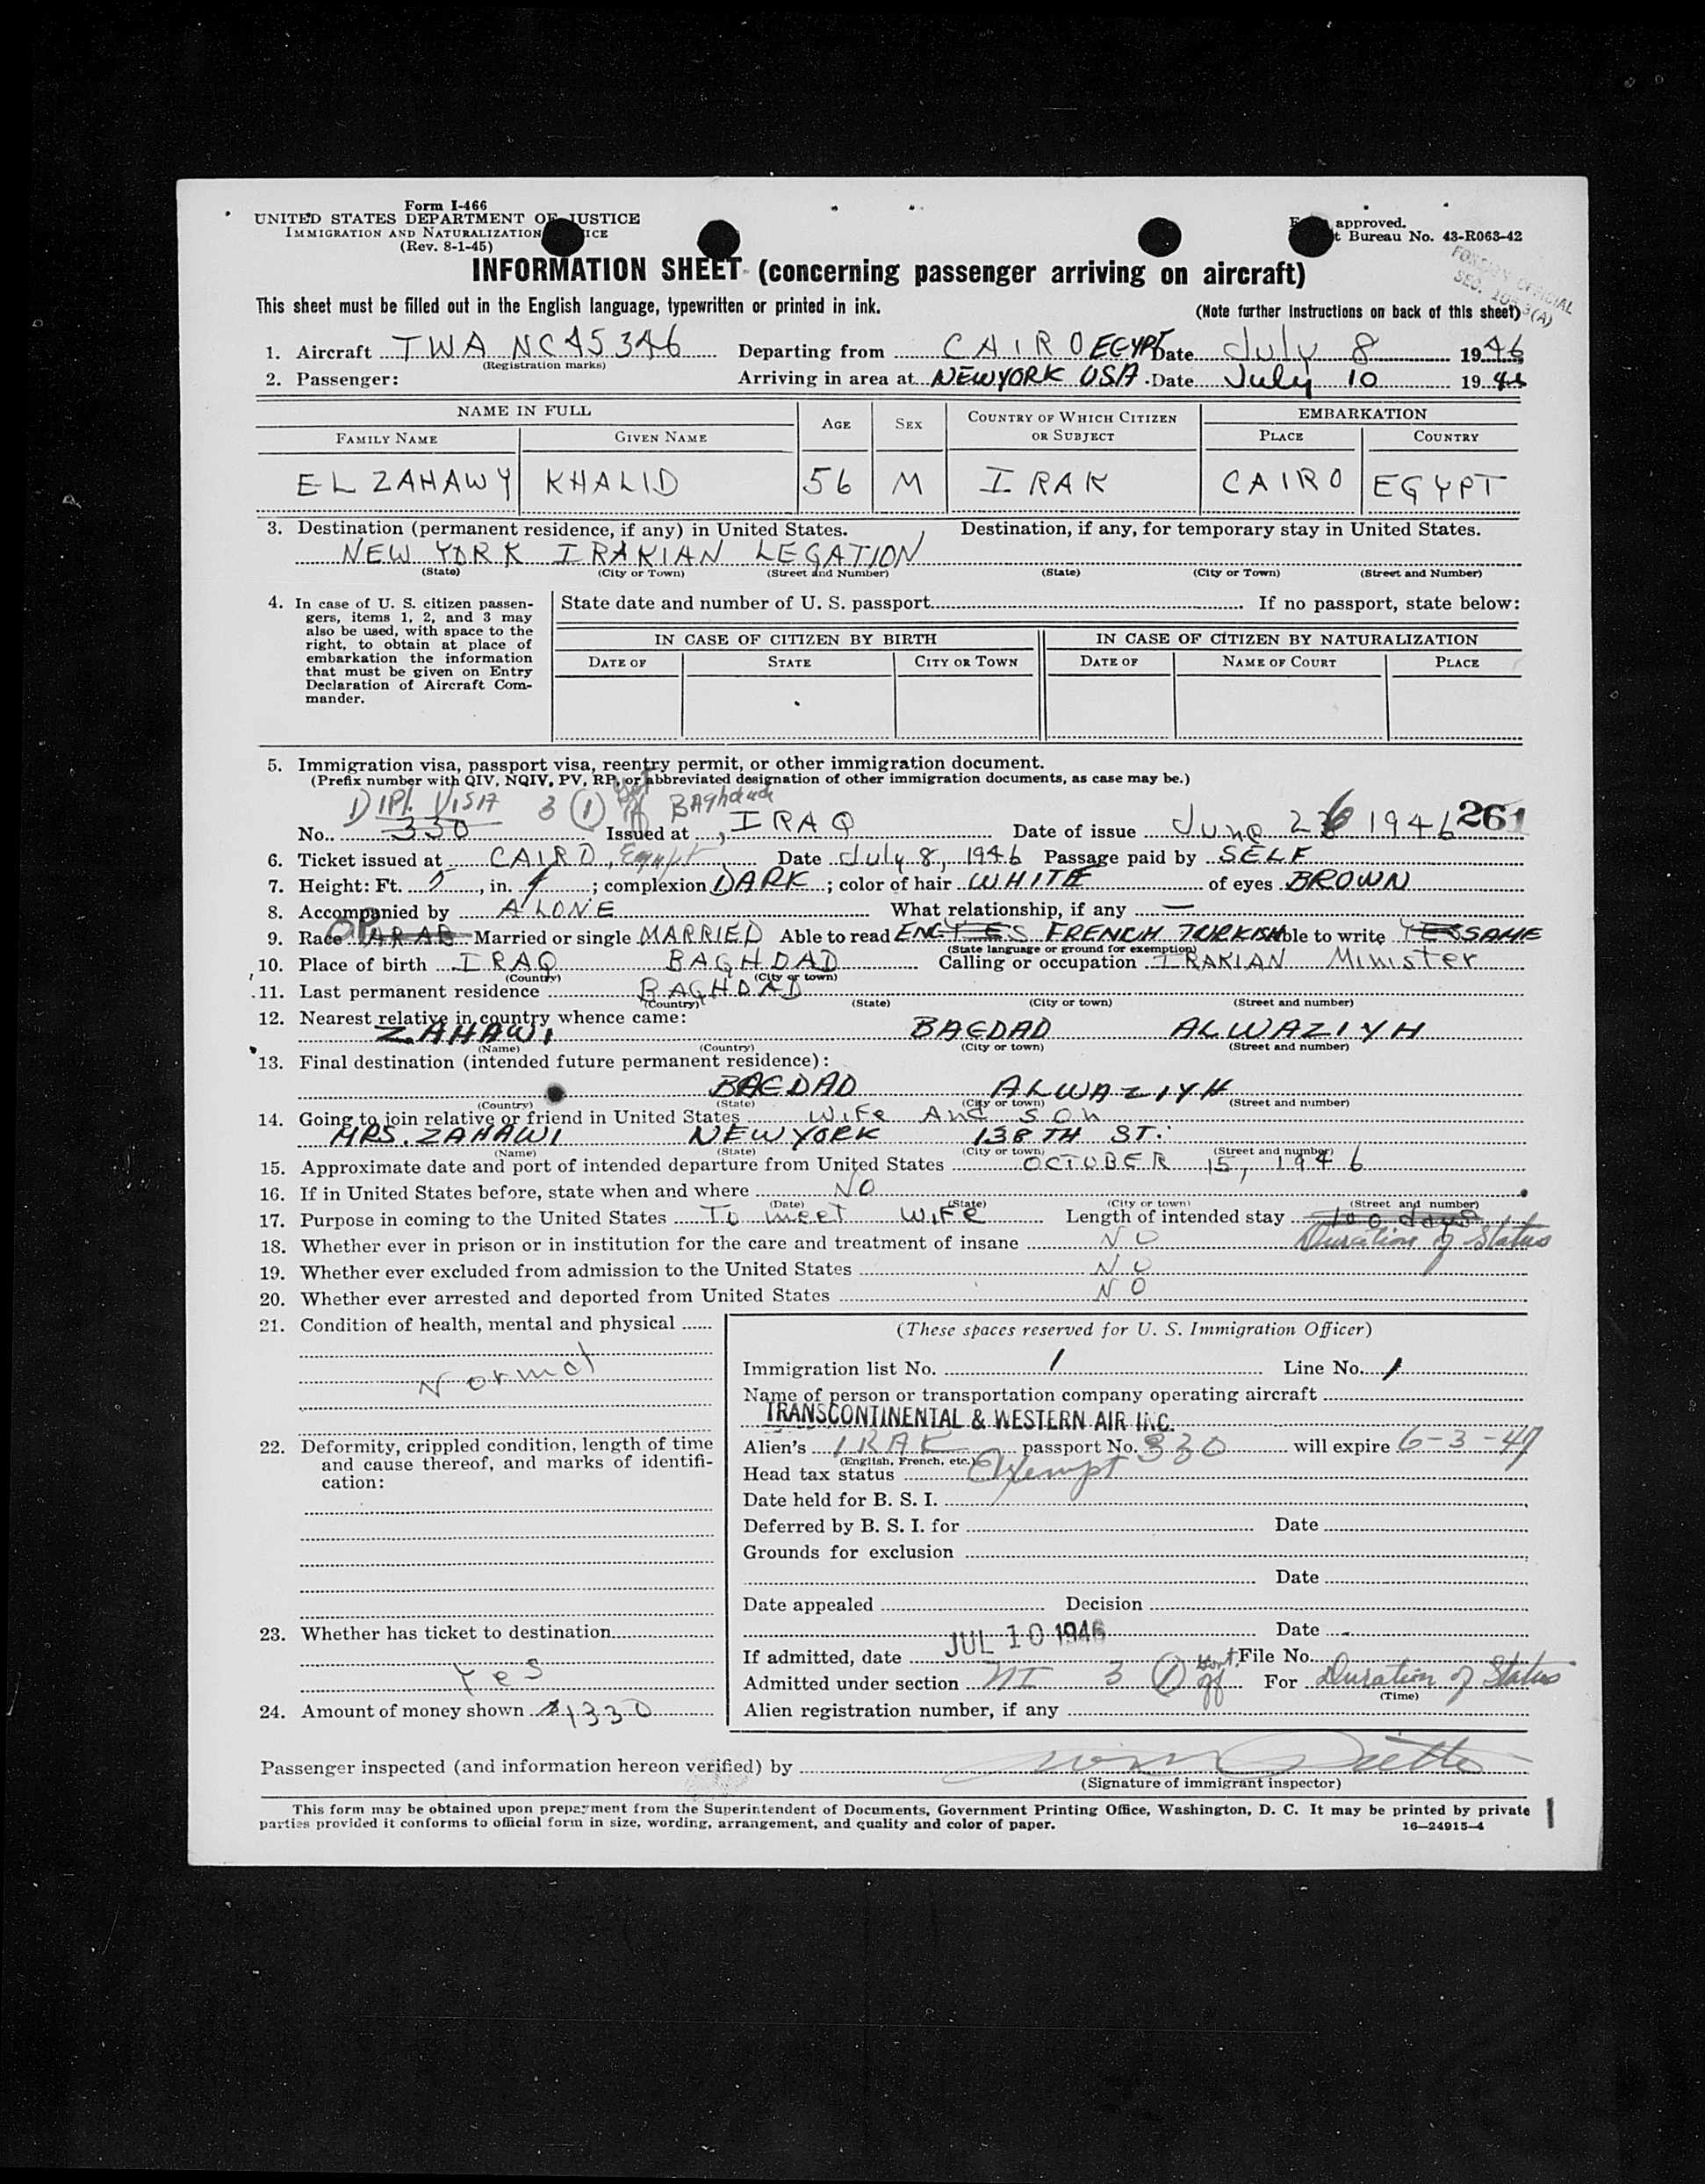 Form I-466
UNITED STATES DEPARTMENT OF JUSTICE
IMMIGRATION AND NATURALIZATION ICE
(Rev. 8-1-45)
approved.
t Bureau No. 43-R063-42
FOREIGN OFFICIAL
SEC. 10 3(A)
INFORMATION SHEET (concerning passenger arriving on aircraft)
This sheet must be filled out in the English language, typewritten or printed in ink.
(Note further instructions on back of this sheet)
1. Aircraft TWA NC45346 Departing from CAIRO EGYPT Date July 8 1946
(Registration marks)
2. Passenger: Arriving in area at NEWYORK USA Date July 10 1946
NAME IN FULL AGE SEX COUNTRY OF WHICH CITIZEN OR SUBJECT EMBARKATION
FAMILY NAME GIVEN NAME PLACE COUNTRY
EL ZAHAWY KHALID 56 M IRAK CAIRO EGYPT
3. Destination (permanent residence, if any) in United States. Destination, if any, for temporary stay in United States.
NEW YORK IRAKIAN LEGATION
(State) (City or Town) (Street and Number) (State) (City or Town) (Street and Number)
4. In case of U. S. citizen passengers, items 1, 2, and 3 may also be used, with space to the right, to obtain at place of embarkation the information that must be given on Entry Declaration of Aircraft Commander.
State date and number of U. S. passport If no passport, state below:
IN CASE OF CITIZEN BY BIRTH IN CASE OF CITIZEN BY NATURALIZATION
DATE OF STATE CITY OR TOWN DATE OF NAME OF COURT PLACE
5. Immigration visa, passport visa, reentry permit, or other immigration document.
(Prefix number with QIV, NQIV, PV, RP, or abbreviated designation of other immigration documents, as case may be.)
DIPL. VISA 3 (1) Baghdad
No. 330 Issued at IRAQ Date of issue June 26 1946 261
6. Ticket issued at CAIRO, Egypt Date July 8, 1946 Passage paid by SELF
7. Height: Ft. 5, in. 4; complexion DARK; color of hair WHITE of eyes BROWN
8. Accompanied by ALONE What relationship, if any —
9. Race ARAB Married or single MARRIED Able to read ENG YES FRENCH TURKISH Able to write YES SAME
(State language or ground for exemption)
10. Place of birth IRAQ BAGHDAD Calling or occupation IRAKIAN Minister
(Country) (City or town)
11. Last permanent residence BAGHDAD
(Country) (State) (City or town) (Street and number)
12. Nearest relative in country whence came:
ZAHAWI BAGDAD ALWAZIYH
(Name) (Country) (City or town) (Street and number)
13. Final destination (intended future permanent residence):
BAGDAD ALWAZIYH
(Country) (State) (City or town) (Street and number)
14. Going to join relative or friend in United States Wife And son
MRS. ZAHAWI NEW YORK 138 TH ST.
(Name) (State) (City or town) (Street and number)
15. Approximate date and port of intended departure from United States OCTOBER 15, 1946
16. If in United States before, state when and where NO
(Date) (State) (City or town) (Street and number)
17. Purpose in coming to the United States To meet Wife Length of intended stay 100 days
Duration of Status
18. Whether ever in prison or in institution for the care and treatment of insane NO
19. Whether ever excluded from admission to the United States NO
20. Whether ever arrested and deported from United States NO
21. Condition of health, mental and physical
Normal
22. Deformity, crippled condition, length of time and cause thereof, and marks of identification:
23. Whether has ticket to destination
Yes
24. Amount of money shown $1330
(These spaces reserved for U. S. Immigration Officer)
Immigration list No. 1 Line No. 1
Name of person or transportation company operating aircraft
TRANSCONTINENTAL & WESTERN AIR INC.
Alien's IRAK passport No. 330 will expire 6-3-47
(English, French, etc.)
Head tax status Exempt
Date held for B. S. I.
Deferred by B. S. I. for Date
Grounds for exclusion
Date
Date appealed Decision
Date
If admitted, date JUL 10 1946 File No.
Admitted under section NI 3 (1) Govt. off For Duration of Status
(Time)
Alien registration number, if any
Passenger inspected (and information hereon verified) by
(Signature of immigrant inspector)
This form may be obtained upon prepayment from the Superintendent of Documents, Government Printing Office, Washington, D. C. It may be printed by private
parties provided it conforms to official form in size, wording, arrangement, and quality and color of paper.
16—24915-4